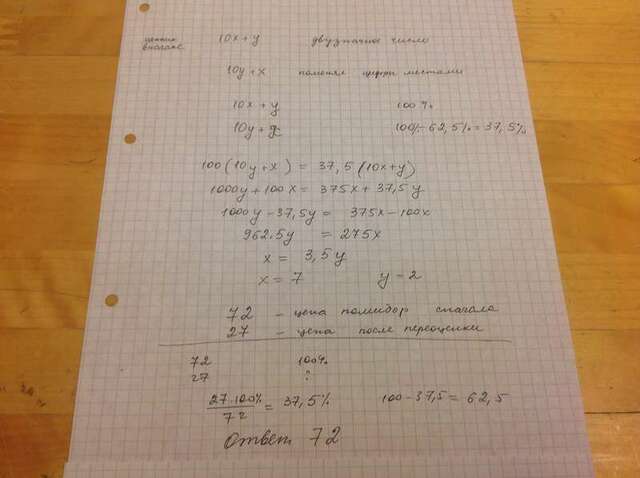 ценник 10x + y двузначное число
вначале
10y + x поменял цифры местами
10x + y 100%
10y + x 100% - 62,5% = 37,5%
100 (10y + x) = 37,5 (10x+y)
1000y + 100x = 375x + 37,5y
1000y - 37,5y = 375x - 100x
962,5y = 275x
x = 3,5y
x = 7 y = 2
72 - цена помидор сначала
27 - цена после переоценки
72 100%
27 ?
27·100% / 72 = 37,5% 100 - 37,5 = 62,5
Ответ 72